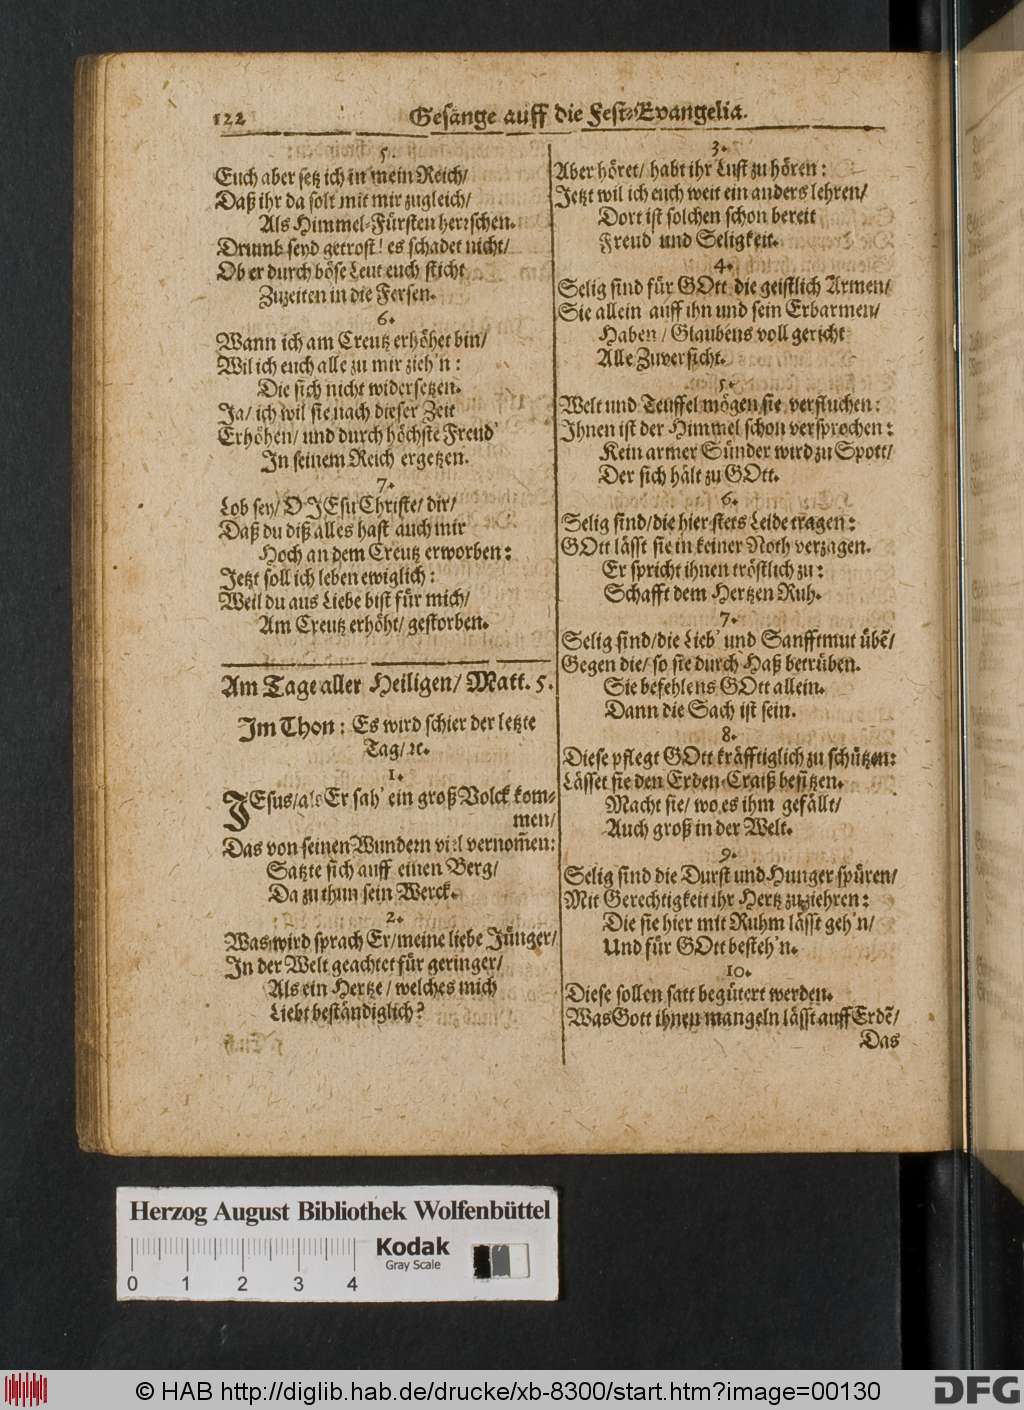 122 Gesänge auff die Fest-Evangelia.
5.
Euch aber setz ich in mein Reich/
Daß ihr da solt mit mir zugleich/
Als Himmel-Fürsten herrschen.
Drumb seyd getrost! es schadet nicht/
Ob er durch böse Leut euch sticht
Zuzeiten in die Fersen.
6.
Wann ich am Creutz erhöhet bin/
Wil ich euch alle zu mir zieh'n:
Die sich nicht widersetzen.
Ja/ ich wil sie nach dieser Zeit
Erhöhen/ und durch höchste Freud'
In seinem Reich ergetzen.
7.
Lob sey/ O JEsu Christe/ dir/
Daß du diß alles hast auch mir
Hoch an dem Creutz erworben:
Jetzt soll ich leben ewiglich:
Weil du aus Liebe bist für mich/
Am Creutz erhöht/ gestorben.
Am Tage aller Heiligen/ Matt. 5.
Im Thon: Es wird schier der letzte
Tag/ ꝛc.
1.
JEsus/ als Er sah' ein groß Volck kom-
men/
Das von seinen Wundern viel vernom̃en:
Satzte sich auff einen Berg/
Da zu thun sein Werck.
2.
Was wird sprach Er/ meine liebe Jünger/
In der Welt geachtet für geringer/
Als ein Hertze/ welches mich
Liebt beständiglich?
3.
Aber höret/ habt ihr Lust zu hören:
Jetzt wil ich euch weit ein anders lehren/
Dort ist solchen schon bereit
Freud' und Seligkeit.
4.
Selig sind für GOtt die geistlich Armen/
Die allein auff ihn und sein Erbarmen/
Haben/ Glaubens voll gericht
Alle Zuversicht.
5.
Welt und Teuffel mögen sie verfluchen:
Ihnen ist der Himmel schon versprochen:
Kein armer Sünder wird zu Spott/
Der sich hält zu GOtt.
6.
Selig sind/ die hier stets Leide tragen:
GOtt lässt sie in keiner Noth verzagen.
Er spricht ihnen tröstlich zu:
Schafft dem Hertzen Ruh.
7.
Selig sind/ die Lieb' und Sanfftmut übẽ/
Gegen die/ so sie durch Haß betrüben.
Sie befehlens GOtt allein.
Dann die Sach ist sein.
8.
Diese pflegt GOtt kräfftiglich zu schützen:
Lässet sie den Erden-Craiß besitzen.
Macht sie/ wo es ihm gefällt/
Auch groß in der Welt.
9.
Selig sind die Durst und Hunger spüren/
Mit Gerechtigkeit ihr Hertz zu ziehren:
Die sie hier mit Ruhm lässt geh'n/
Und für GOtt besteh'n.
10.
Diese sollen satt begütert werden.
Was Gott ihnen mangeln lässt auff Erdẽ/
Das
Herzog August Bibliothek Wolfenbüttel
Kodak
Gray Scale
0 1 2 3 4
© HAB http://diglib.hab.de/drucke/xb-8300/start.htm?image=00130
DFG